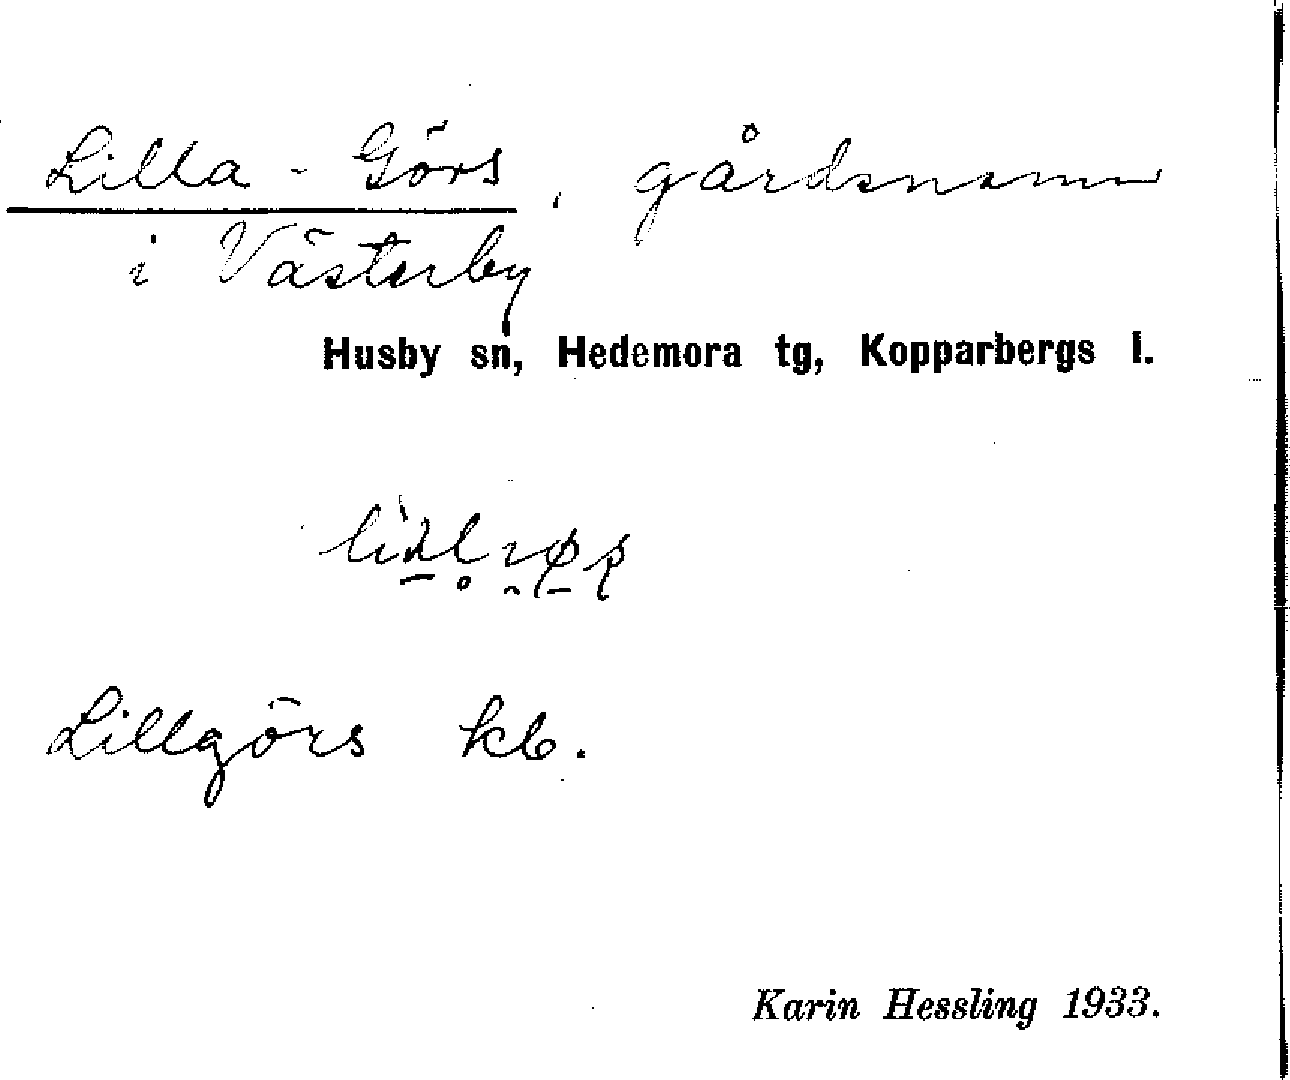 Lilla - Görs, gårdsnamn
i Västerby
Husby sn, Hedemora tg, Kopparbergs l.
Lillgörs kb.
Karin Hessling 1933.